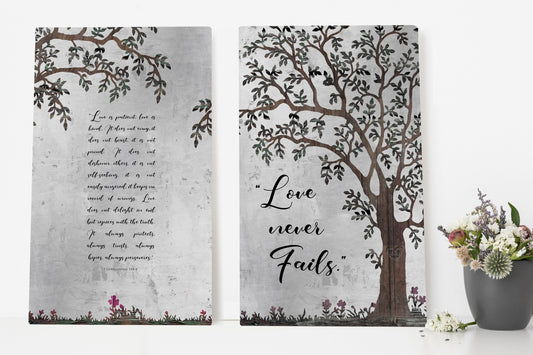 "Love is patient, love is
kind. It does not envy, it
does not boast, it is not
proud. It does not
dishonor others, it is not
self-seeking, it is not
easily angered, it keeps no
record of wrongs. Love
does not delight in evil
but rejoices with the truth.
It always protects,
always trusts, always
hopes, always perseveres."
"Love
never
Fails."